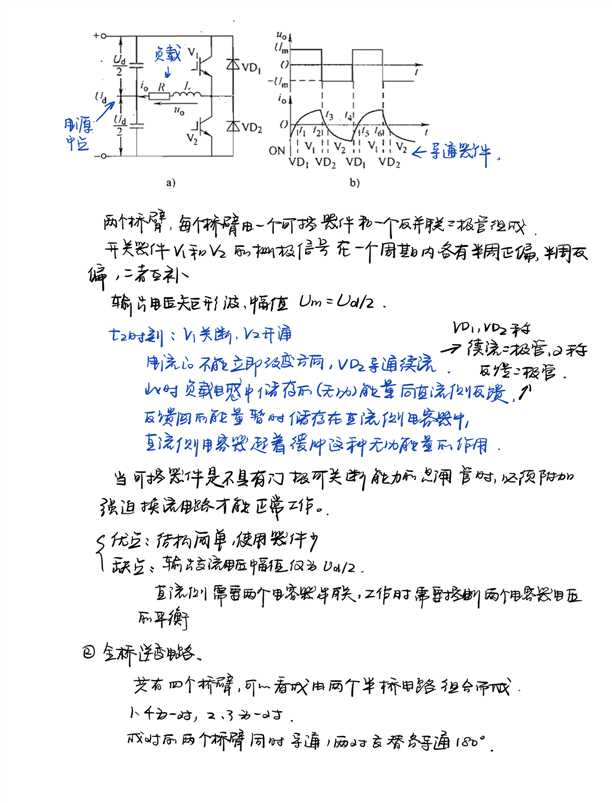 + U_d/2 负载 V₁ VD₁
i_o R L
U_d
u_o
电源中点 U_d/2 V₂ VD₂
−
a)
u_o
U_m
O t
−U_m
i_o
O t₁ t₂ t₃ t₄ t₅ t₆ t
ON V₁ V₂ V₁ V₂ ←导通器件
VD₁ VD₂ VD₁ VD₂
b)
两个桥臂,每个桥臂由一个可控器件和一个反并联二极管组成.
开关器件V₁和V₂的栅极信号在一个周期内各有半周正偏,半周反
偏,二者互补、
输出电压矩形波,幅值 Um=Ud/2.
t2时刻:V₁关断,V₂开通
电流io不能立即改变方向,VD₂导通续流.
此时负载电感中储存的(无功)能量向直流侧反馈,
反馈回的能量暂时储存在直流侧电容器中,
直流侧电容器起着缓冲这种无功能量的作用.
VD₁,VD₂称
→续流二极管,又称
反馈二极管.
当可控器件是不具有门极可关断能力的晶闸管时,必须附加
强迫换流电路才能正常工作。
优点:结构简单,使用器件少
缺点:输出交流电压幅值仅为Ud/2.
直流侧需要两个电容器串联,工作时需要控制两个电容器电压
的平衡
② 全桥逆变电路、
共有四个桥臂,可以看成由两个半桥电路组合而成.
1、4为一对,2、3为一对.
成对的两个桥臂同时导通,两对交替各导通180°.